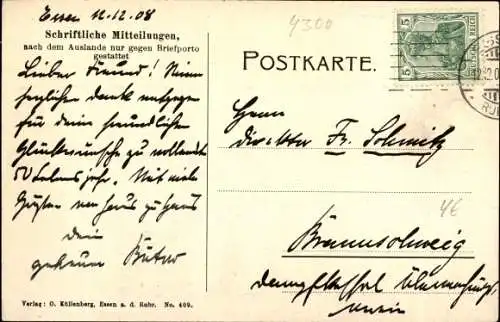 Essen 12.12.08
Schriftliche Mitteilungen,
nach dem Auslande nur gegen Briefporto
gestattet
Lieber Freund! Nimm
herzlichen Dank entgegen
für deine freundlichen
Glückwünsche zu vollendeten
50 Lebensjahr. Mit viele
Grüßen von Haus zu Haus
dein
getreuer
Verlag: O. Küllenberg, Essen a. d. Ruhr. No. 409.
4300
POSTKARTE.
5
5
DEUTSCHES REICH
Herrn
Direktor Fr. Schmitz
Braunschweig
Dampfkessel Überwachungs
verein
4€